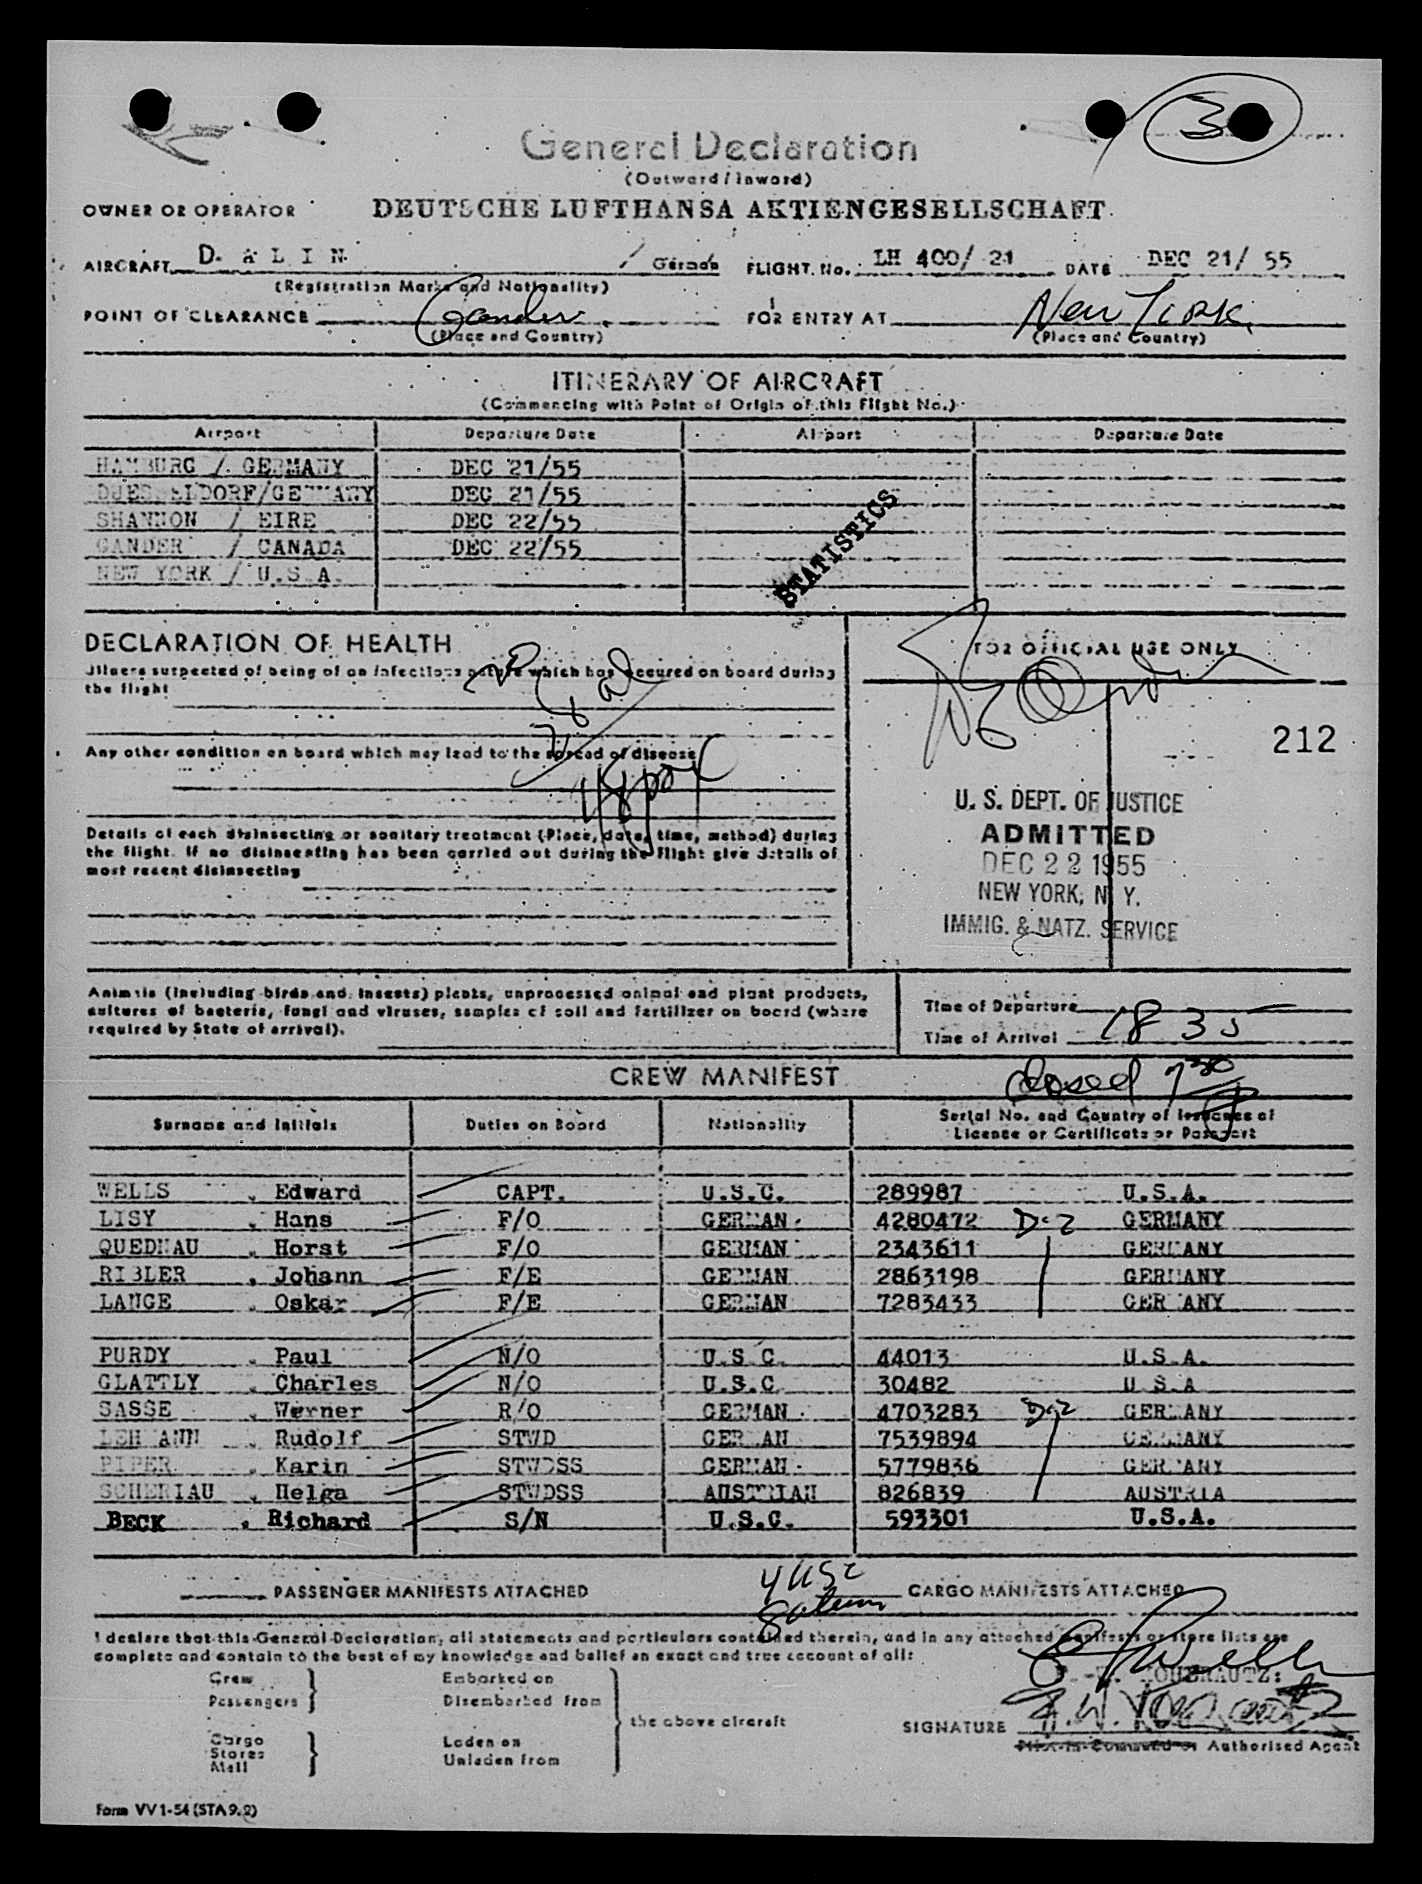 3
General Declaration
(Outward / Inward)
OWNER OR OPERATOR DEUTSCHE LUFTHANSA AKTIENGESELLSCHAFT
AIRCRAFT D. A L I N / German FLIGHT. No. LH 400/ 21 DATE DEC 21/ 55
(Registration Marks and Nationality)
POINT OF CLEARANCE Gander FOR ENTRY AT New York
(Place and Country) (Place and Country)
ITINERARY OF AIRCRAFT
(Commencing with Point of Origin of this Flight No.)
Airport Departure Date Airport Departure Date
HAMBURG / GERMANY DEC 21/55
DUESSELDORF/GERMANY DEC 21/55
SHANNON / EIRE DEC 22/55
GANDER / CANADA DEC 22/55
NEW YORK / U.S.A.
STATISTICS
DECLARATION OF HEALTH
Illness suspected of being of an infectious nature which has occured on board during
the flight
Any other condition on board which may lead to the spread of disease
Details of each disinsecting or sanitary treatment (Place, date, time, method) during
the flight. If no disinsecting has been carried out during the flight give details of
most recent disinsecting
FOR OFFICIAL USE ONLY
212
U. S. DEPT. OF JUSTICE
ADMITTED
DEC 22 1955
NEW YORK, N. Y.
IMMIG. & NATZ. SERVICE
Animals (including birds and insects) plants, unprocessed animal and plant products,
cultures of bacteria, fungi and viruses, samples of soil and fertilizer on board (where
required by State of arrival).
Time of Departure
Time of Arrival 1835
CREW MANIFEST
closed 7 30
Surname and Initials Duties on Board Nationality Serial No. and Country of Issuance of
Licence or Certificate or Passport
WELLS , Edward CAPT. U.S.C. 289987 U.S.A.
LISY , Hans F/O GERMAN 4280472 D-2 GERMANY
QUEDNAU , Horst F/O GERMAN 2343611 GERMANY
RIBLER , Johann F/E GERMAN 2863198 GERMANY
LANGE , Oskar F/E GERMAN 7283433 GERMANY
PURDY , Paul N/O U.S.C. 44013 U.S.A.
GLATTLY , Charles N/O U.S.C. 30482 U.S.A
SASSE , Werner R/O GERMAN 4703283 D-2 GERMANY
LEHMANN , Rudolf STWD GERMAN 7539894 GERMANY
PIPER , Karin STWDSS GERMAN 5779836 GERMANY
SCHERIAU , Helga STWDSS AUSTRIAN 826839 AUSTRIA
BECK , Richard S/N U.S.C. 593301 U.S.A.
PASSENGER MANIFESTS ATTACHED CARGO MANIFESTS ATTACHED
4 USC
8 alien
I declare that this General Declaration, all statements and particulars contained therein, and in any attached manifests or store lists are
complete and contain to the best of my knowledge and belief an exact and true account of all:
Crew
Passengers
Embarked on
Disembarked from
Cargo
Stores
Mail
Loden on
Unladen from
the above aircraft
SIGNATURE
Pilot-in-Command or Authorised Agent
Form VV 1-54 (STA 9.2)